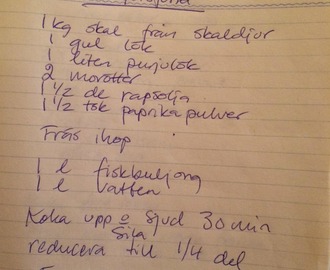 1 kg skal från skaldjur
1 gul lök
1 liten purjolök
2 morötter
1 1/2 dl rapsolja
1 1/2 tsk paprikapulver
Fräs ihop
1 l fiskbuljong
1 l vatten
Koka upp o Sjud 30 min
Sila
reducera till 1/4 del